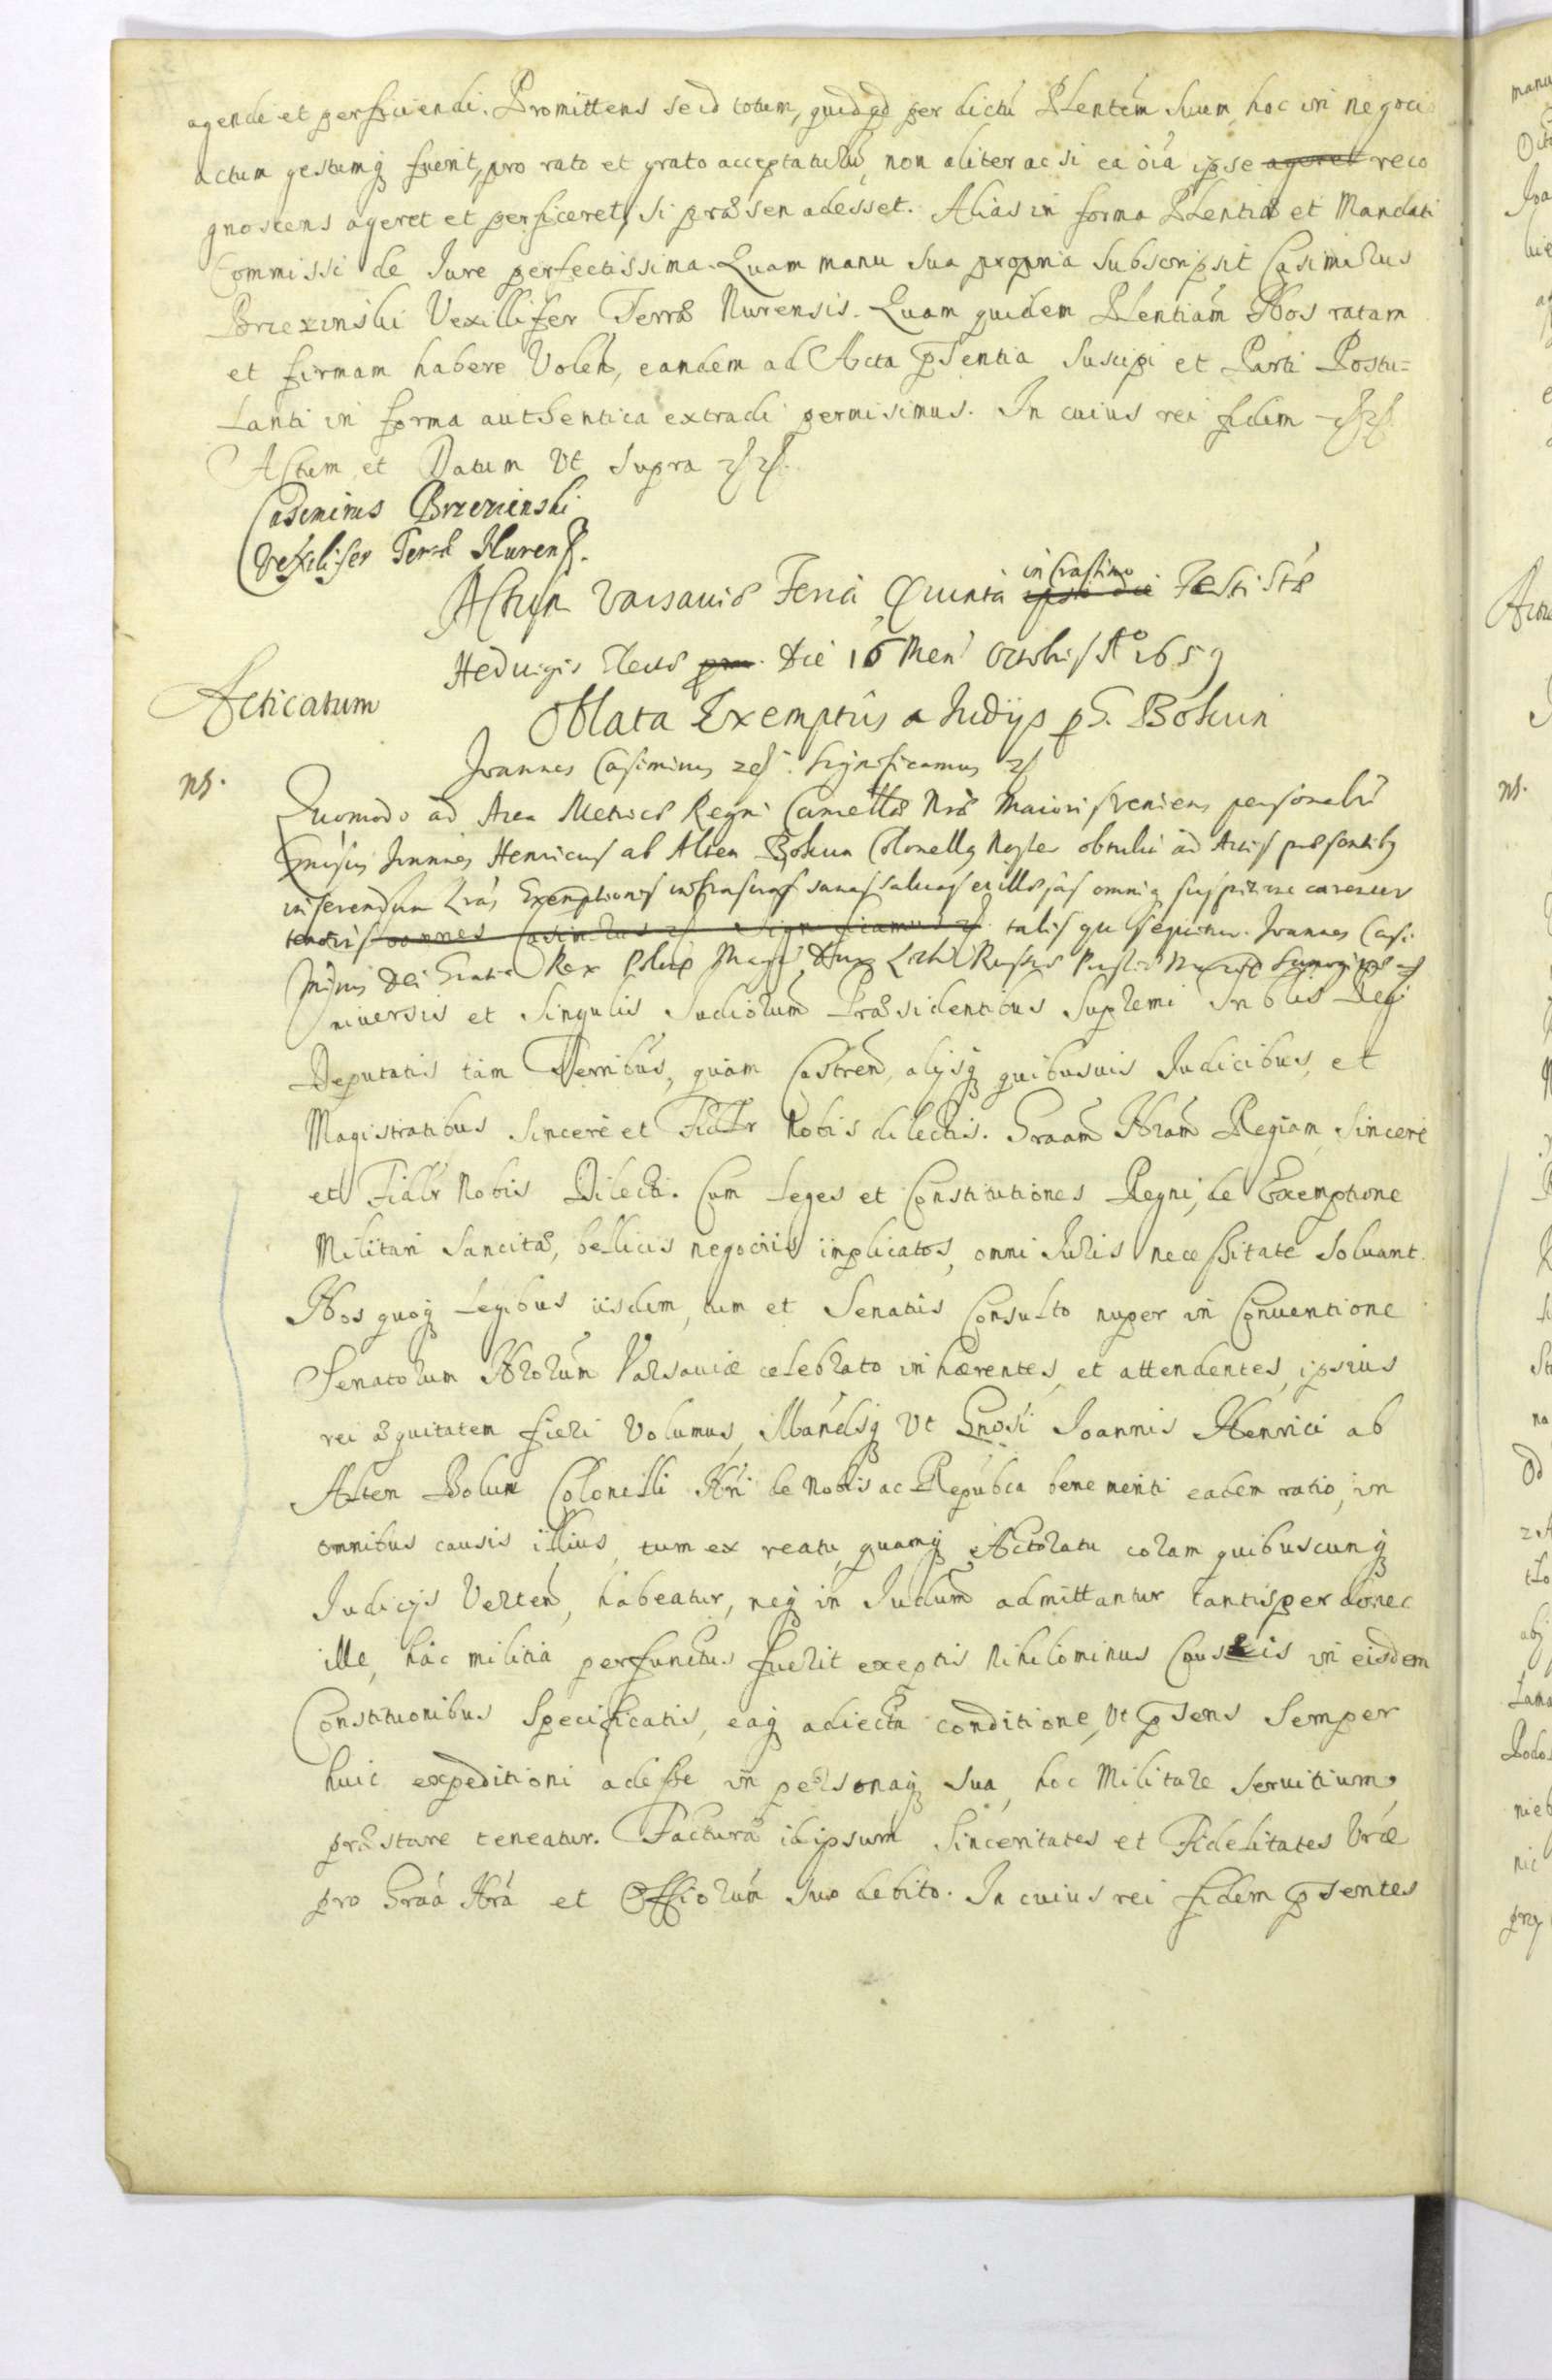 agendi et perficiendi. Promittens se id totum, quidqd per dictú Plentém suum hoc in negocio
actum gestumq fuerit, pro rato et grato acceptaturú, non aliter ac si ea oía ipse ageret reco
gnoscens ageret et perficeret, si præsen adesset. Alias in forma Plentiæ et Mandati
Commissi de Iure perfectissima. Quam manu sua propria subscripsit Casimirus
Brzezinski Vexillifer Terræ Nurensis. Quam quidem Plentiám Nos ratam
et firmam habere Volen, eandem ad Acta pͫsentia suscipi et Parti Postu=
lanti in forma authentica extradi permisimus. In cuius rei fidem
Actum et Datum Vt supra
Casimirus Brzezienski
Vexilifer Terræ Nurens.
Actum Varsaviæ Feria Quinta in Crastino ipso die Festi Stæ
Hedvigis Electæ Die 16 Men Octobris Aº 1659
Acticatum
Oblata Exemptûs a Iudijs pG. Bokun
Ioannes Casimirus Significamus
ns.
Quomodo ad Acta Metrices Regni Cancellæ Nræ Maioris veniens personalr
Gnosus Ioannes Henricus ab Alten Bokun Colonellq Noster obtulit ad Actis præsentibq
inserendum Lrás Exemptionis infrascras sanas salvas et illæsas omniq suspicione carentes
tenoris Ioannes Casimirus Significamus talis qu sequitur. Ioannes Casi
mirus Dei Gratia Rex Poloniæ Magn Dux Lith Russiæ Prussiæ
niversis et singulis Iudiciorum Præsidentibus Supremi Triblis Regi
Deputatis tám Terribús, quám Castren, alijsq quibusuis Iudicibus, et
Magistratibus Sinceré et Fidlr Nobis dilectis. Graam Nram Regiam, Sinceré
et Fidlr Nobis Dilecti. Cum Leges et Constitutiones Regni, de Exemptione
Militari Sancitæ, bellicis negociis implicatos, omni Iuris necessitate soluant.
Nos quoq Legibus iisdem, tum et Senatûs Consulto nuper in Conventione
Senatorum Nrorum Varsaviæ celebrato inhærentes, et attendentes, ipsius
rei æquitatem fieri Volumus, Mandsq Vt Gnosi Ioannis Henrici ab
Alten Bokun Colonelli Nri de Nobis ac Repúbca bene meriti eadem ratio, in
omnibus causis illius, tum ex reatu, quamq Actoratu coram quibuscunq
Iudicijs Verten, habeatur, neq in Iudium admittantur tantisper donec
ille, hác militia perfunctus fuerit exeptis nihilominus Causis in eisdem
Constituonibus specificatis, eaq adiecta conditione, Vt pͫsens semper
huic expeditioni adesse in personaq sua, hoc Militare seruitium,
præstare teneatur. Facturæ idipsum Sinceritates et Fidelitates Vræ
pro Graá Nrá et Officiorum suo debito. In cuius rei fidem pͫsentes